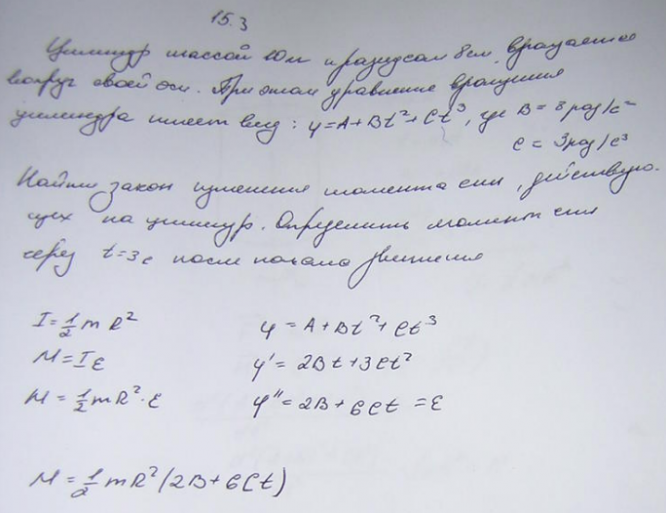 15.3
Цилиндр массой 10кг и радиусом 8см, вращается
вокруг своей оси. При этом уравнение вращения
цилиндра имеет вид: φ=A+Bt²+Ct³, где B=8рад/с²
C=3рад/с³
Найти закон изменения момента сил, действую-
щих на цилиндр. Определить момент сил
через t=3c после начала движения
I=½mR²
M=Iε
M=½mR²·ε
φ=A+Bt²+Ct³
φ'=2Bt+3Ct²
φ''=2B+6Ct=ε
M=½mR²(2B+6Ct)